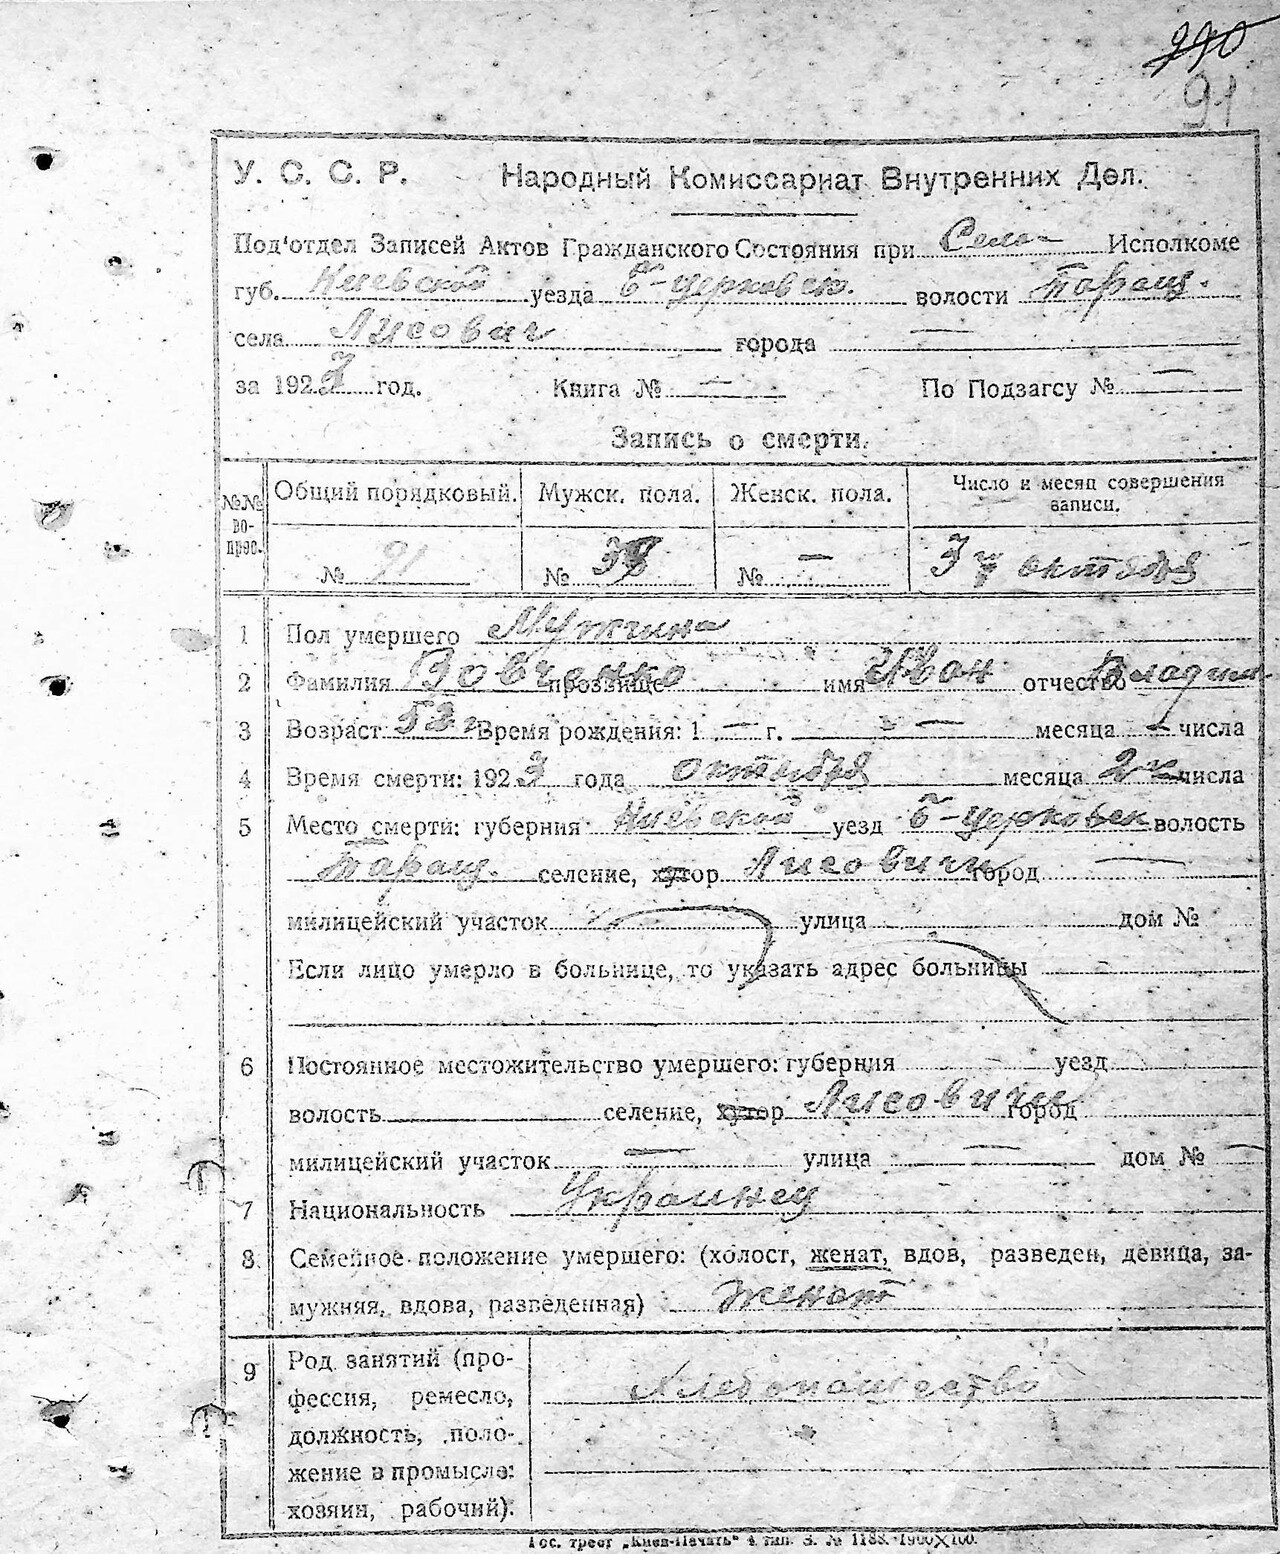 290
91
У. С. С. Р. Народный Комиссариат Внутренних Дел.
Под'отдел Записей Актов Гражданского Состояния при Село- Исполкоме
губ. Киевской уезда Б-церковск. волости Таращ.
села Лисович города —
за 1923 год. Книга № — По Подзагсу № —
Запись о смерти.
№№ вопрос. Общий порядковый. Мужск. пола. Женск. пола. Число и месяц совершения записи.
№ 91 № 38 № — 3 го октября
1 Пол умершего Мужчина
2 Фамилия Вовченко прозвище имя Иван отчество Владим
3 Возраст 53 г Время рождения: 1 — г. — месяца — числа
4 Время смерти: 1923 года октября месяца 2 числа
5 Место смерти: губерния Киевской уезд Б-церковск волость
Таращ. селение, хутор Лисовичи город —
милицейский участок улица дом №
Если лицо умерло в больнице, то указать адрес больницы
6 Постоянное местожительство умершего: губерния уезд
волость селение, хутор Лисовичи город
милицейский участок — улица — дом № —
7 Национальность Украинец
8 Семейное положение умершего: (холост, женат, вдов, разведен, девица, за-
мужняя, вдова, разведенная) женат
9 Род занятий (про-
фессия, ремесло,
должность, поло-
жение в промысле:
хозяин, рабочий).
Хлебопашество
Гос. трест „Киев-Печать“ 4 тип. З. № 1188